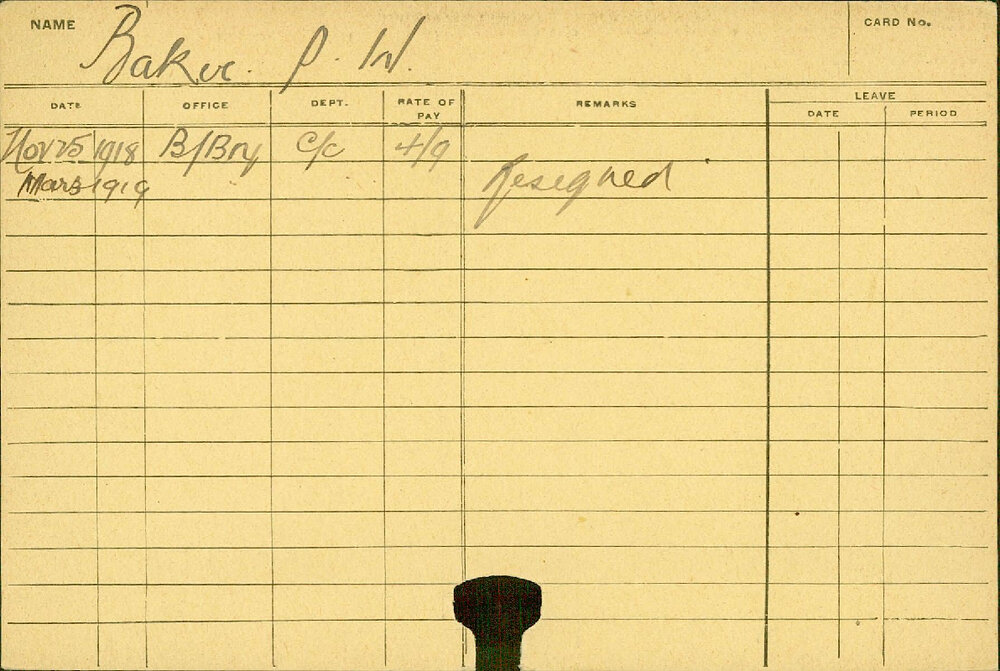 NAME Baker. P. W. CARD No.
DATE OFFICE DEPT. RATE OF PAY REMARKS LEAVE
DATE PERIOD
Nov 25 1918 B/Bny C/c 4/9
Mar 3 1919 Resegned